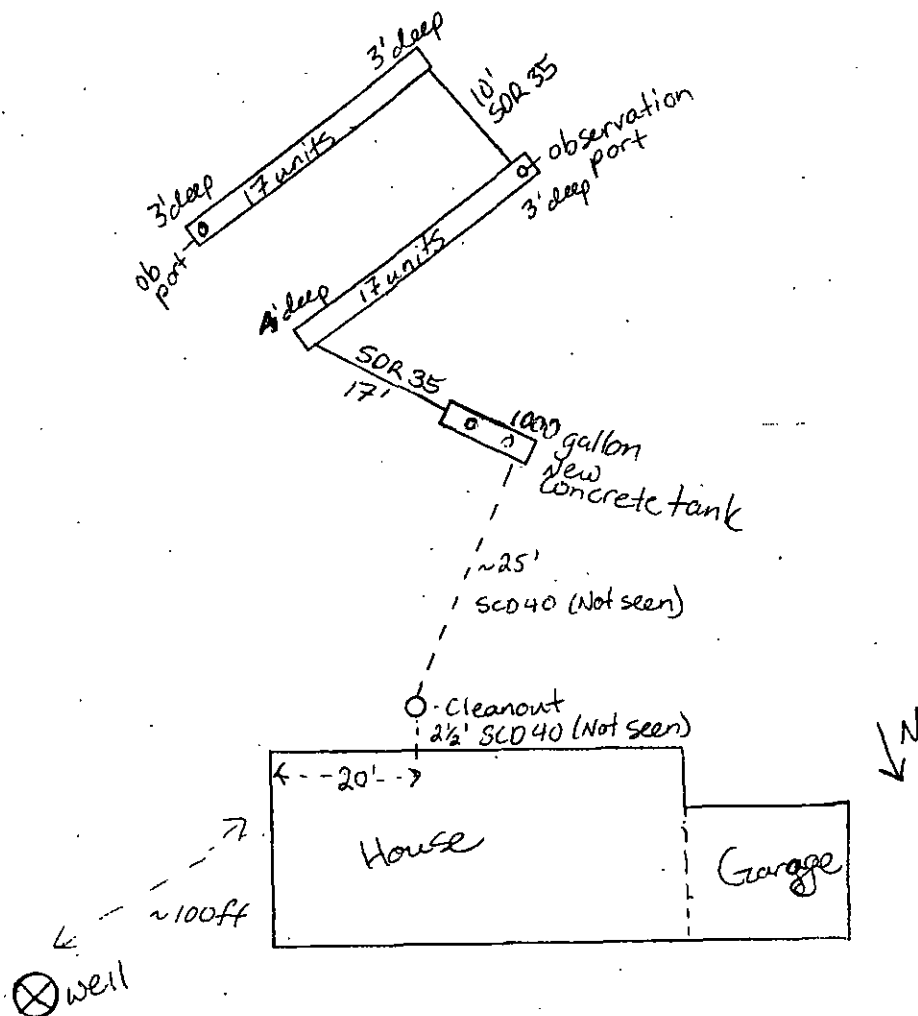 3' deep
10'
SDR 35
observation
port
3' deep
17 units
3' deep
ob
port
17 units
4' deep
SDR 35
17'
1000 gallon
New
concrete tank
~25'
SCD 40 (Not seen)
Cleanout
2½' SCD 40 (Not seen)
N
20'
House
Garage
~100ft
well